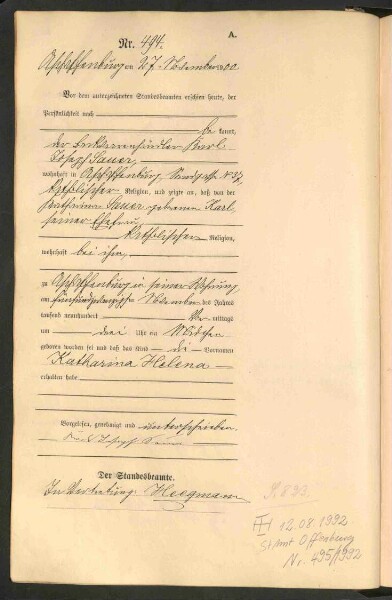 A.
Nr. 494.
Aschaffenburg am 27. November 1900.
Vor dem unterzeichneten Standesbeamten erschien heute, der
Persönlichkeit nach
be kannt,
der Karl
Joseph Sauer,
wohnhaft in Aschaffenburg
katholischer Religion, und zeigte an, daß von der
Katharina Sauer gebornen Karl,
seiner Ehefrau,
katholischer Religion,
wohnhaft bei ihm,
zu Aschaffenburg in seiner Wohnung
am November des Jahres
tausend neunhundert Vormittags
um drei Uhr ein Mädchen
geboren worden sei und daß das Kind die Vornamen
Katharina Helena
erhalten habe
Vorgelesen, genehmigt und unterschrieben
Karl Joseph Sauer
Der Standesbeamte.
In Vertretung:
12.08.1992
StAmt Offenburg
Nr. 495/1992